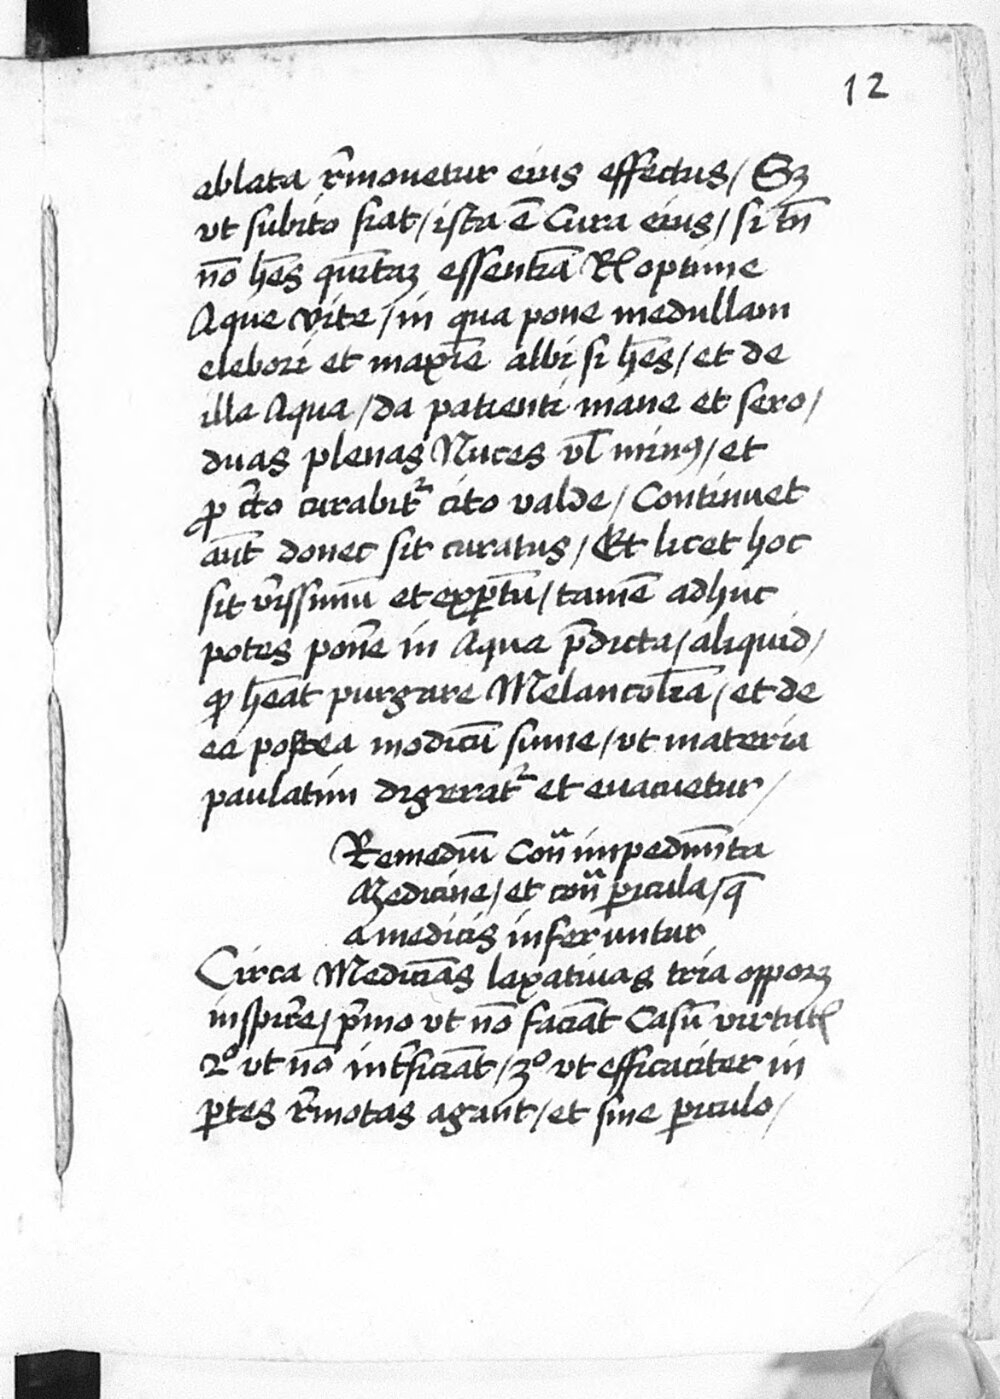 12
ablata r̃mouetur eius effectus / Sꝫ
vt subito fiat / ista ē Cura eius / si tñ
nō hēs quĩtaꝫ essentiā Rl optime
Aque vite / in qua pone medullam
elebori et maxīe albi si hēs / et de
illa Aqua / da patienti mane et sero /
duas plenas Nuces vl̃ minꝰ / et
ꝓ c̃to curabit᷑ cito valde / Continuet
aũt donec sit curatus / Et licet hoc
sit v̾issimū et exꝑtū / tamē adhuc
potes pon̄e in Aqua p̄dicta / aliquid /
ꝙ hēat purgare Melancoliā / et de
ea postea modicū sume / vt materia
paulatim digerat᷑ et euacuetur /
Remediū Cont̃ impedim̄ta
Medicine / et cont̃ ꝑicula / q̄
a medicis inferuntur
Circa Medicīas laxatiuas tria opporꝫ
inspic̃e / p̃mo vt nō faciāt Casū virtutꝭ
2º vt nō int̃ficiāt / 3º vt efficaciter in
ꝑtes r̃motas agant / et sine ꝑiculo /